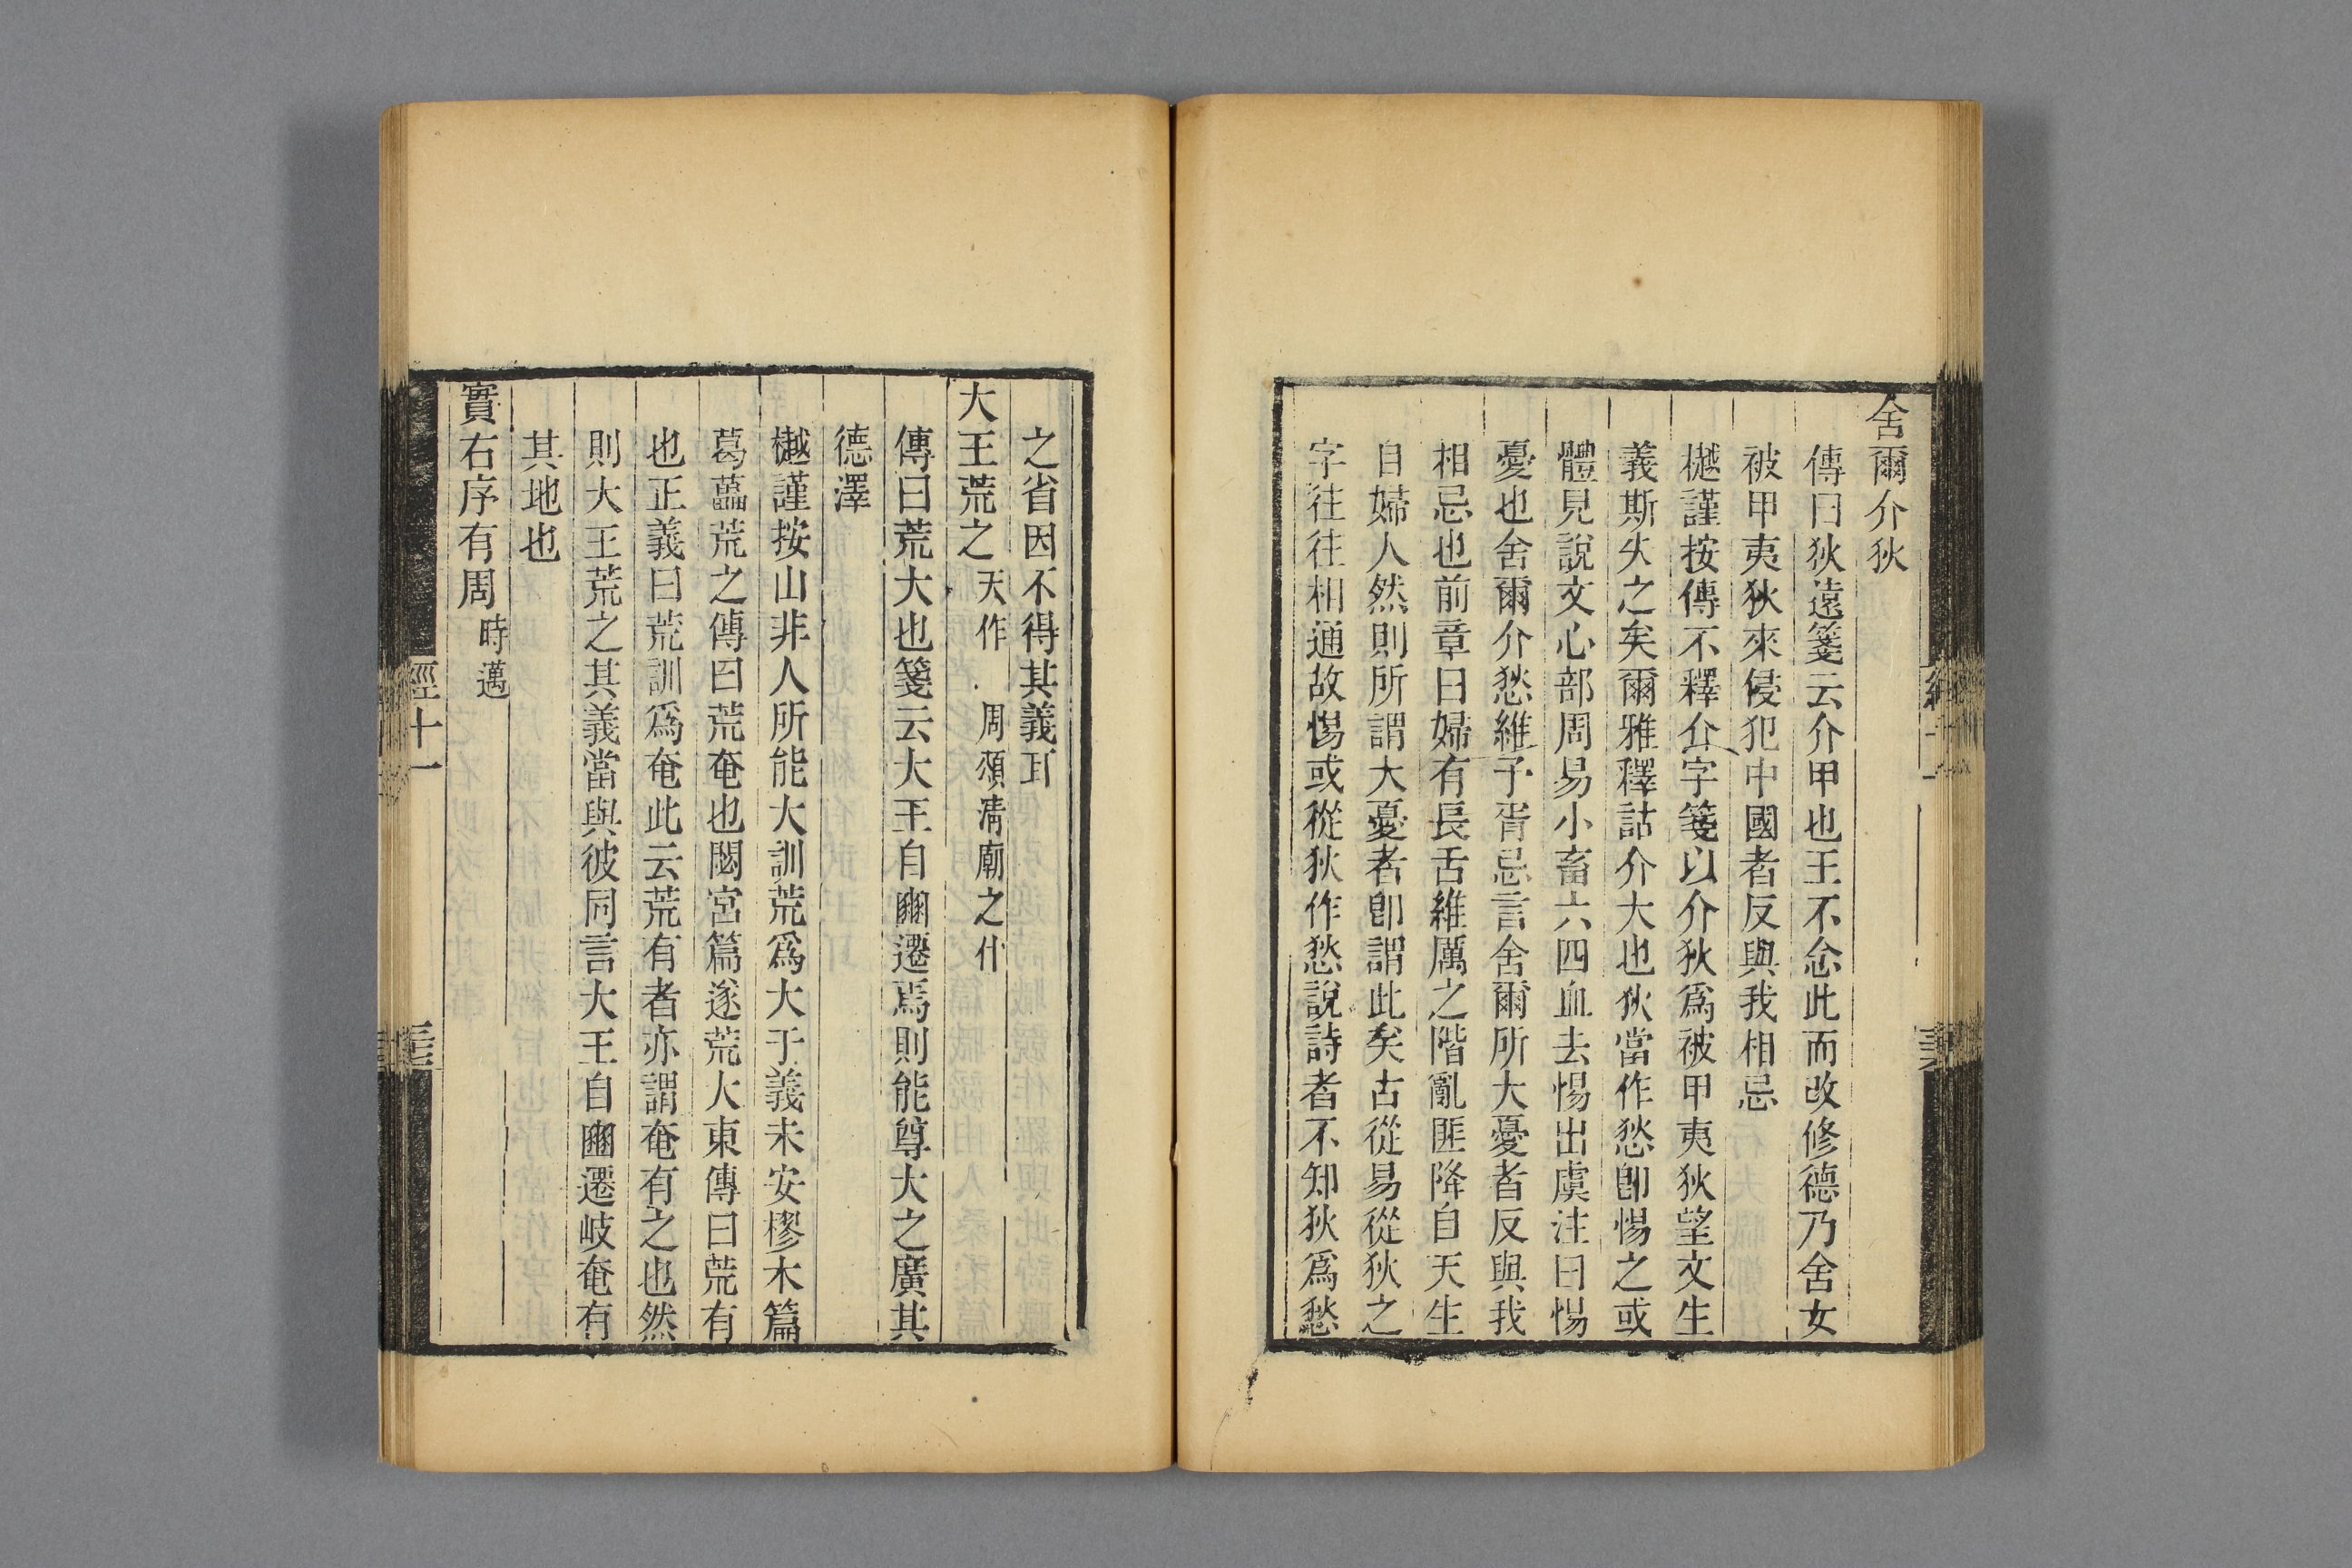 舍爾介狄
傳曰狄遠箋云介甲也王不忿此而改修德乃舍女
被甲夷狄來侵犯中國者反與我相忌
樾謹按傳不釋介字箋以介狄爲被甲夷狄望文生
義斯失之矣爾雅釋詁介大也狄當作愁卽惕之或
體見說文心部周易小畜六四血去惕出虞注曰惕
憂也舍爾介愁維予胥忌言舍爾所大憂者反與我
相忌也前章曰婦有長舌維厲之階亂匪降自天生
自婦人然則所謂大憂者卽謂此矣古從易從狄之
字往往相通故惕或從狄作愁說詩者不知狄爲愁
之省因不得其義耳
大王荒之 天作 周頌淸廟之什
傳曰荒大也箋云大王自豳遷焉則能尊大之廣其
德澤
樾謹按山非人所能大訓荒爲大于義未安樛木篇
葛藟荒之傳曰荒奄也閟宮篇遂荒大東傳曰荒有
也正義曰荒訓爲奄此云荒有者亦謂奄有之也然
則大王荒之其義當與彼同言大王自豳遷岐奄有
其地也
實右序有周 時邁
經十一